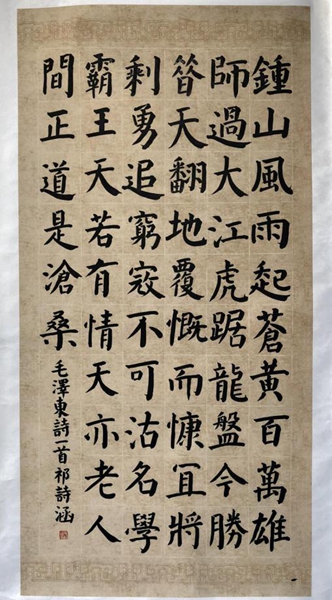 鍾山風雨起蒼黃百萬雄
師過大江虎踞龍盤今勝
昔天翻地覆慨而慷冝將
剩勇追窮寇不可沽名學
霸王天若有情天亦老人
間正道是滄桑
毛澤東詩一首祁詩涵